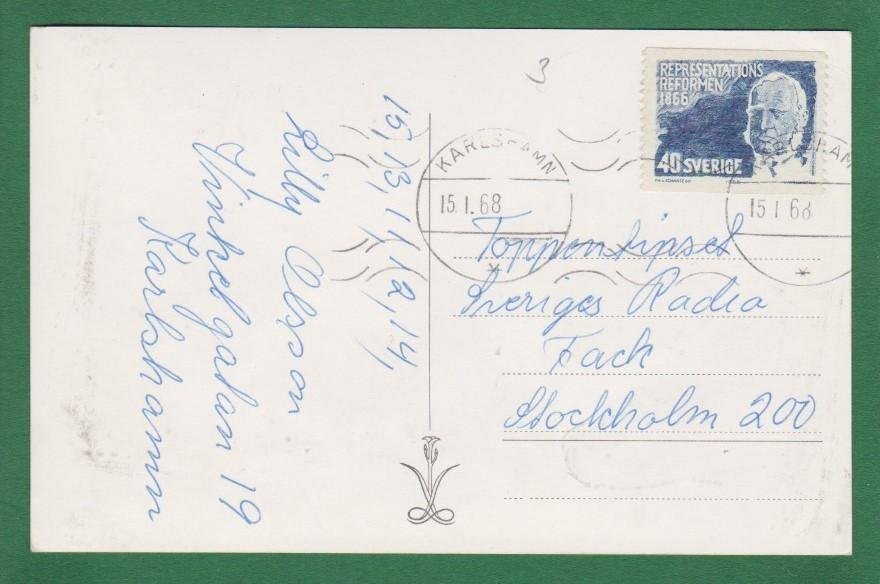 15, 13, 11, 12, 14,
Lilly Olsson
Vinkelgatan 19
Karlshamn
3
REPRESENTATIONS
REFORMEN
1866
40 SVERIGE
KARLSHAMN
15.1.68
KARLSHAMN
15 1 68
Toppentipset
Sveriges Radio
Fack
Stockholm 200